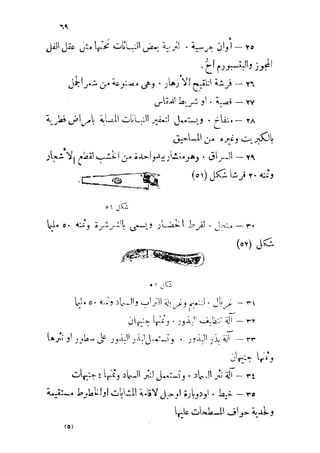 ٦٩
٢٥ — أوان جرسية . لتربية بعض النباتات تحتها مثل عقل الفل
المجوز والبتسبورم الخ.
٢٦ — فرشة لتلقيح الأزهار . وهى مصنوعة من شعر الجمل
٢٧ — قصبة . او شريط للقياس
٢٨ — منفاخ . ويستعمل لتعفير النباتات المصابة بامراض فطرية
بالكبريت وغيره من المساحيق
٢٩ — السراق . وهو منشار بيد واحدة من الخشب لقطع الأشجار
وثمنه ٢٠ قرشا شكل (٥١)
شكل ٥١
٣٠ — منجل . لقرط الخضار ويسمى بالشرشرة وثمنه ٥٠ مليما
شكل (٥٢)
شكل ٥٢
٣١ — غربال . لتنعيم وغربلة التراب والسماد وثمنه ٥٠ مليما
٣٢ — آلة تنظيف البذور . وثمنها جنيهان
٣٣ — آلة بذر البذور . وتستعمل لبذر البذور على سطور او نثرها
وثمنها جنيهان
٣٤ — آلة نثر السماد . وتستعمل لنثر السماد وثمنها ٤ جنيهات
٣٥ — خيط . اودوبارة اوحبل لاقامة المشايات أوالخطوط مستقيمة
ولتحدية حواف المسطحات عليها
(٥)